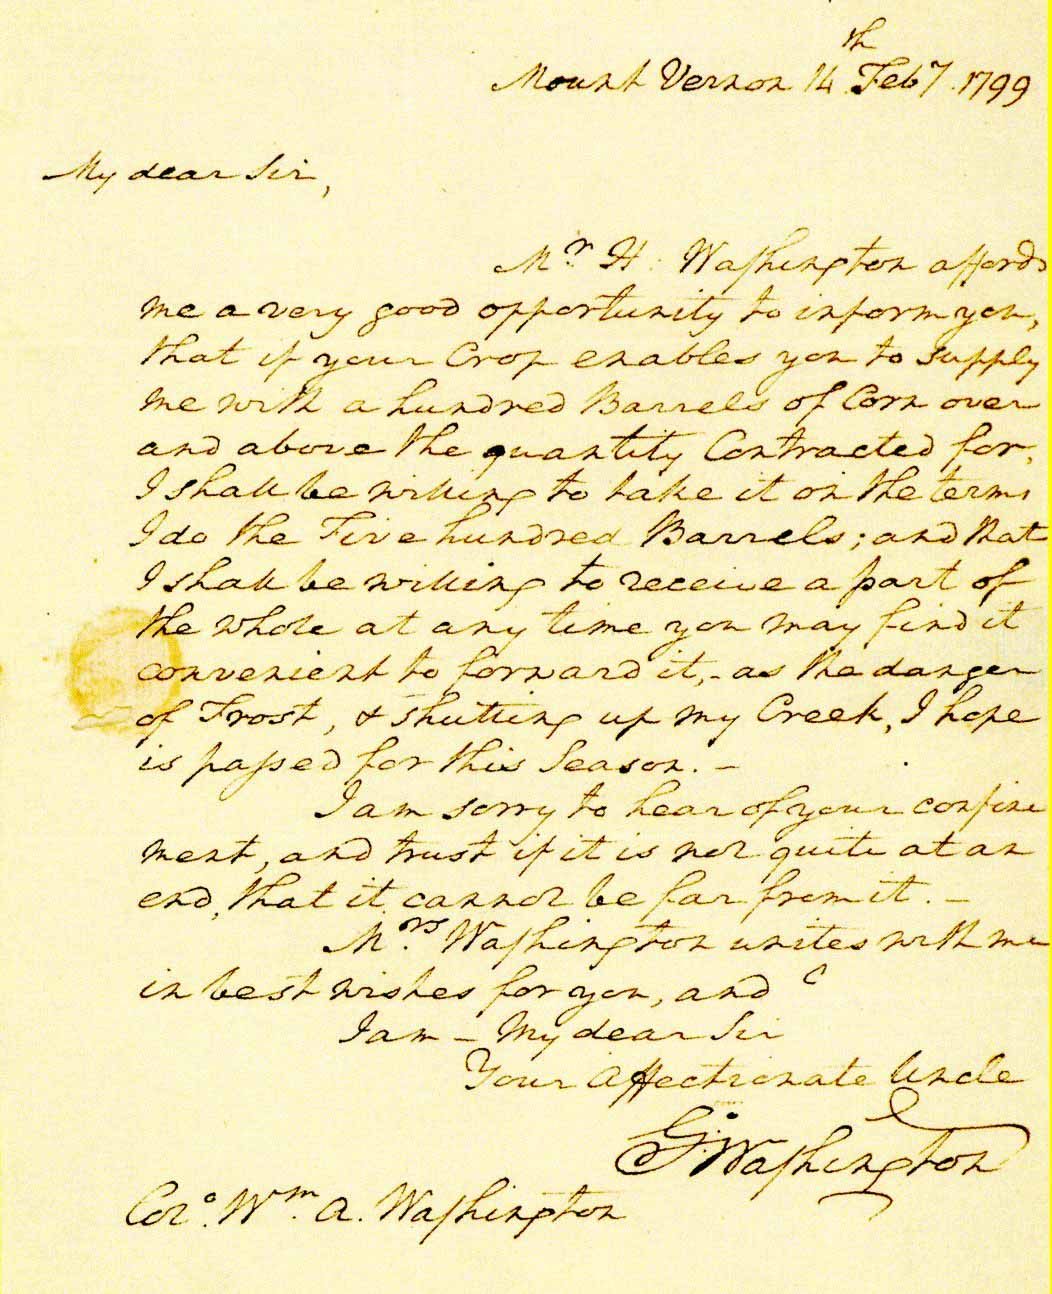 Mount Vernon 14th Feby. 1799
My dear Sir,
Mr. H. Washington affords
me a very good opportunity to inform you,
that if your Crop enables you to supply
me with a hundred Barrels of Corn over
and above the quantity Contracted for,
I shall be willing to take it on the terms
I do the Five hundred Barrels; and that
I shall be willing to receive a part of
the whole at any time you may find it
convenient to forward it,- as the danger
of Frost, & shutting up my Creek, I hope
is passed for this Season.-
I am sorry to hear of your confine
ment, and trust if it is not quite at an
end, that it cannot be far from it.-
Mrs. Washington unites with me
in best wishes for you, and
I am - My dear Sir
Your Affectionate Uncle
Go: Washington
Colo. Wm. A. Washington